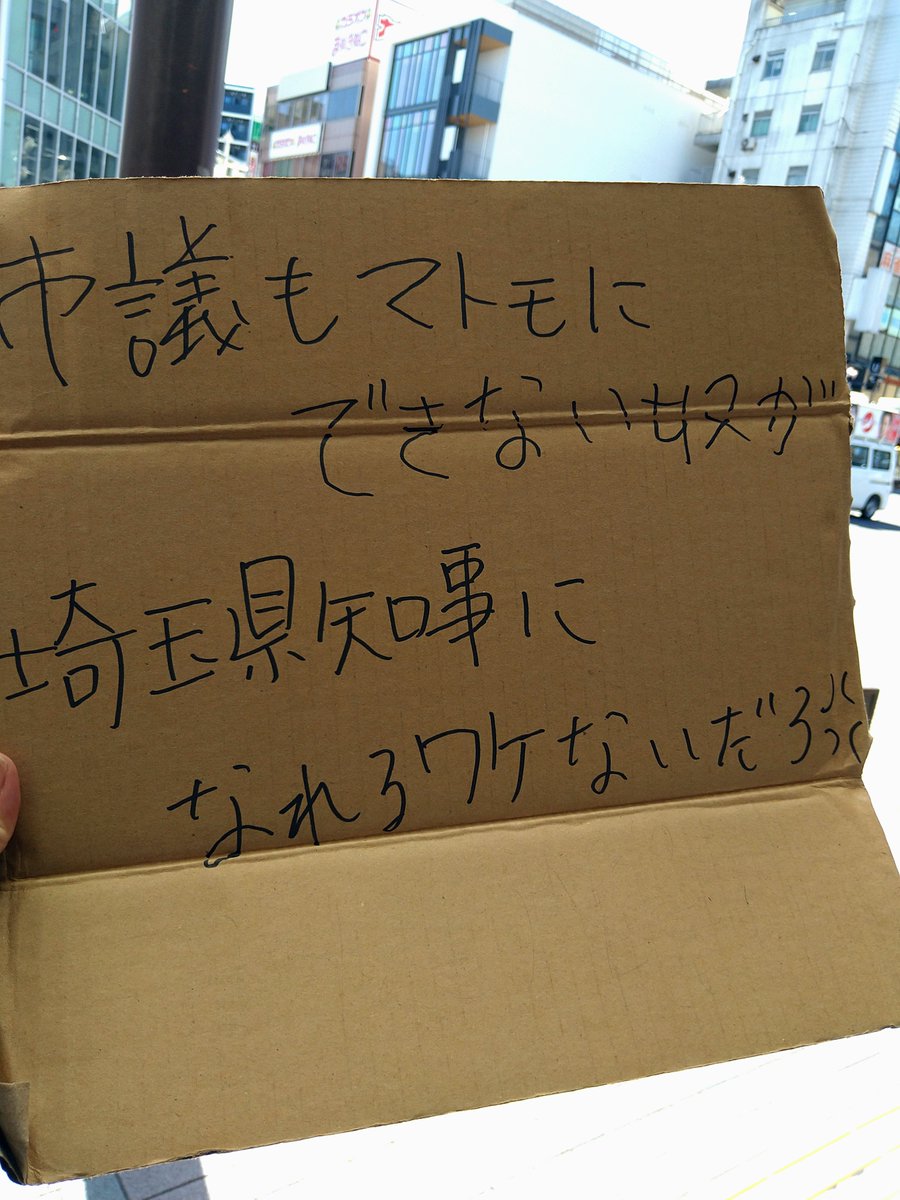 市議もマトモに
できない奴が
埼玉県知事に
なれるワケないだろ💢